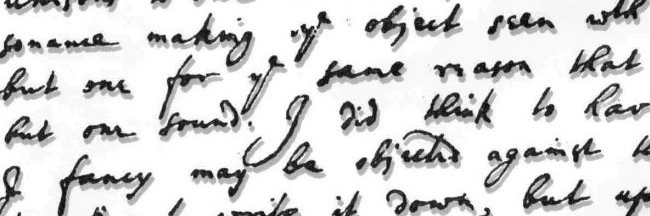 sonance making ye object seen with
but one for ye same reason that
but one sound. I did think to hav
I fancy may be objected against
write it down, but up